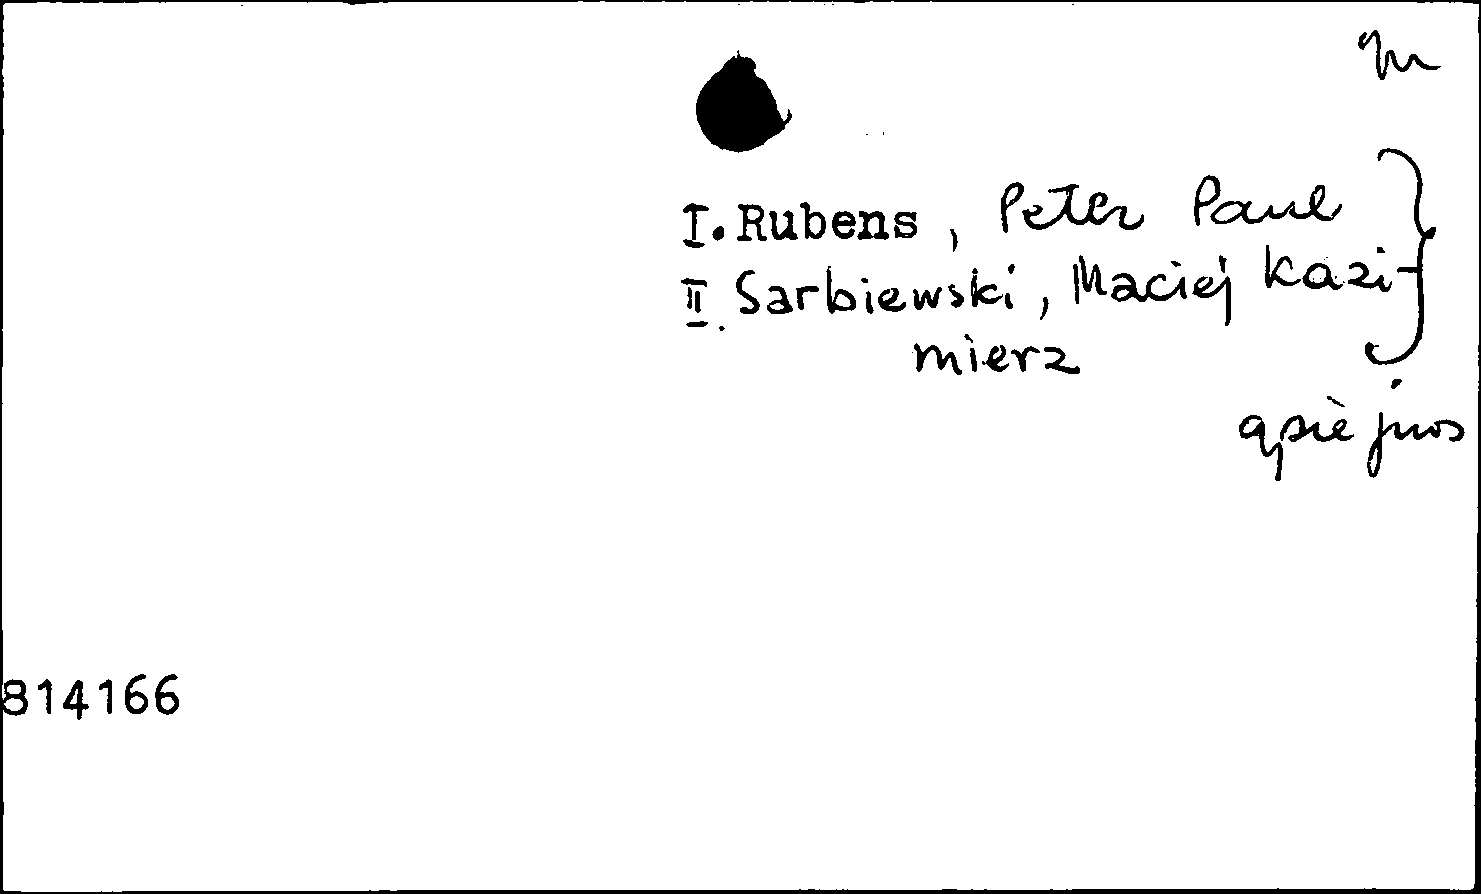 I. Rubens, Peter Paul
II. Sarbiewski, Maciej Kazi-
mierz
814166